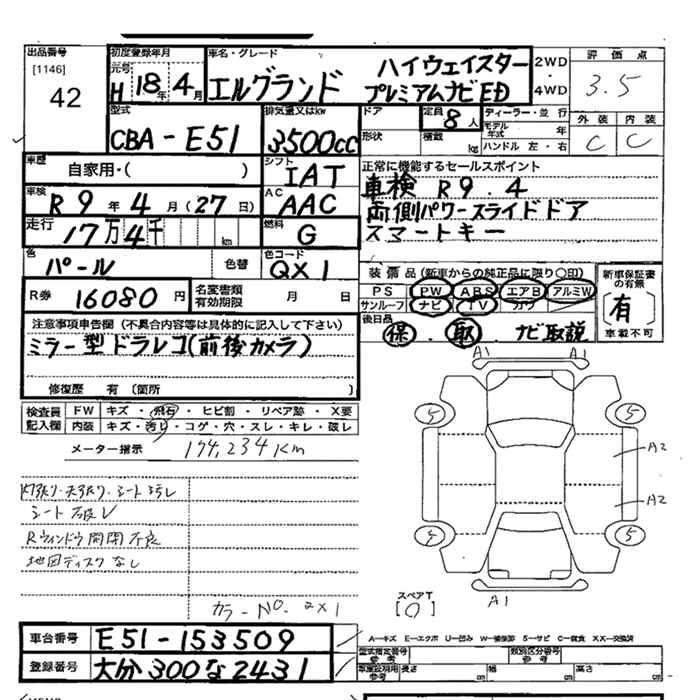 出品番号
[1146]
42
初度登録年月
元号
H 18年 4月
車名・グレード
エルグランド ハイウェイスター
プレミアムナビED
2WD・
4WD
評価点
3.5
外装 内装
C C
型式
CBA-E51
排気量又はkw
3500cc
ドア
形状
定員 8人
積載 kg
ディーラー・並行
モデル年式 年
ハンドル 左・右
車歴
自家用・( )
シフト
IAT
車検
R9年 4月(27日)
AC
AAC
走行
17万4千 km
燃料
G
正常に機能するセールスポイント
車検 R9.4
両側パワースライドドア
スマートキー
色
パール
色替
色コード
QX1
R券 16080円
名変書類
有効期限
月 日
装備品 (新車からの純正品に限り〇印)
PS PW ABS エアB アルミW
サンルーフ ナビ TV カワ
新車保証書
の有無
有
車載不可
後日品
保. 取. ナビ取説
注意事項車告欄 (不具合内容等は具体的に記入して下さい)
ミラー型ドラレコ(前後カメラ)
修復歴 有 〔箇所 〕
検査員
記入欄
FW キズ・飛石・ヒビ割・リペア跡・X要
内装 キズ・汚れ・コゲ・穴・スレ・キレ・破レ
メーター指示 174,234Km
シート破レ
Rウィンドウ開閉不良
地図ディスクなし
カラーNo. QX1
A1 A1
5 5
A2
A2
5 5
A1
スペアT
[0]
車台番号 E51-153509
登録番号 大分300な2431
A―キズ E―エクボ U―凹み W―補修跡 S―サビ C―腐食 XX―交換済
型式指定番号
参考
類別区分番号
参考
車庫証明用
参考
長さ cm 幅 cm 高さ cm